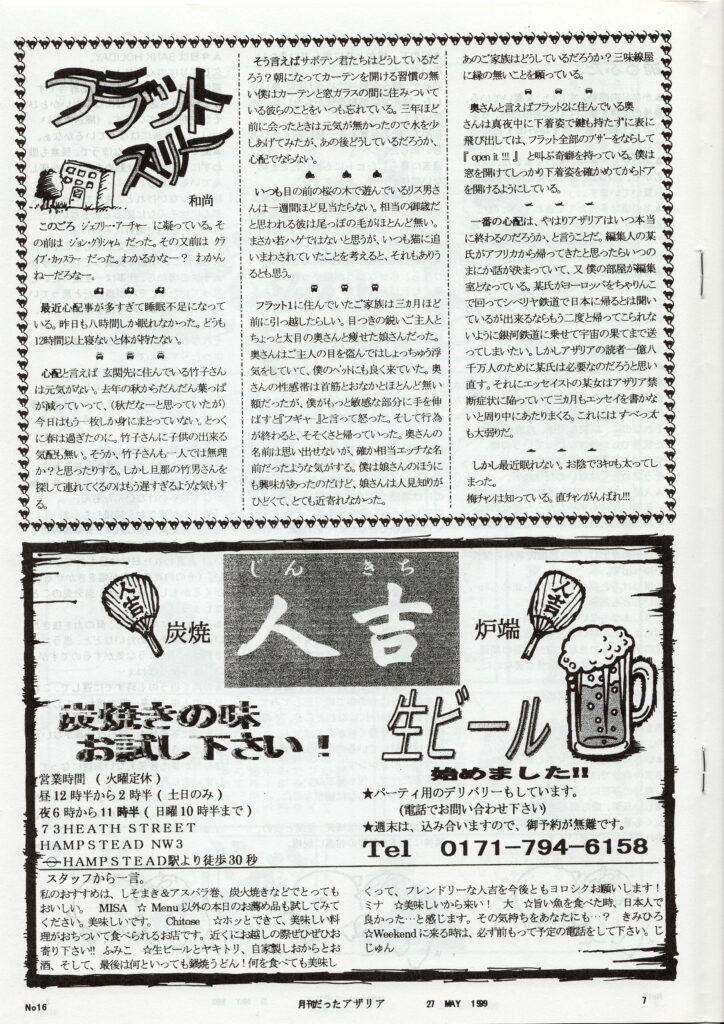 フラット
スリー
和尚
このごろ ジェフリー・アーチャー に凝っている。そ
の前は ジョン・グリシャム だった。その又前は クラ
イブ・カッスラー だった。わかるかなー？ わかん
ねーだろなー。
最近心配事が多すぎて睡眠不足になって
いる。昨日も八時間しか眠れなかった。どうも
12時間以上寝ないと体が持たない。
心配と言えば 玄関先に住んでいる竹子さん
は元気がない。去年の秋からだんだん葉っぱ
が減っていって、(秋だなーと思っていたが)
今日はもう一枚しか身にまとっていない。とっく
に春は過ぎたのに。竹子さんに子供の出来る
気配も無い。そうか、竹子さんも一人では無理
か？と思ったりする。しかし旦那の竹男さんを
探して連れてくるのはもう遅すぎるような気もす
る。
そう言えばサボテン君たちはどうしているだ
ろう？朝になってカーテンを開ける習慣の無
い僕はカーテンと窓ガラスの間に住みついて
いる彼らのことをいつも忘れている。三年ほど
前に会ったときは元気が無かったので水を少
しあげてみたが、あの後どうしているだろうか、
心配でならない。
いつも目の前の桜の木で遊んでいるリス男さ
んは一週間ほど見当たらない。相当の御歳だ
と思われる彼は尾っぽの毛がほとんど無い。
まさか若ハゲではないと思うが、いつも猫に追
いまわされていたことを考えると、それもありう
るとも思う。
フラット1に住んでいたご家族は三カ月ほど
前に引っ越したらしい。目つきの鋭いご主人と
ちょっと太目の奥さんと痩せた娘さんだった。
奥さんはご主人の目を盗んではしょっちゅう浮
気をしていて、僕のベットにも良く来ていた。奥
さんの性感帯は首筋とおなかとほとんど無い
額だったが、僕がもっと敏感な部分に手を伸
ばすと『フギャ』と言って怒った。そして行為
が終わると、そそくさと帰っていった。奥さんの
名前は思い出せないが、確か相当エッチな名
前だったような気がする。僕は娘さんのほうに
も興味があったのだけど、娘さんは人見知りが
ひどくて、とても近寄れなかった。
あのご家族はどうしているだろうか？三味線屋
に縁の無いことを願っている。
奥さんと言えばフラット2に住んでいる奥
さんは真夜中に下着姿で鍵も持たずに表に
飛び出しては、フラット全部のブザーをならして
『 open it !!! 』と叫ぶ奇癖を持っている。僕は
窓を開けてしっかり下着姿を確かめてからドア
を開けるようにしている。
一番の心配は、やはりアザリアはいつ本当
に終わるのだろうか、と言うことだ。編集人の某
氏がアフリカから帰ってきたと思ったらいつの
まにか話が決まっていて、又 僕の部屋が編集
室となっている。某氏がヨーロッパをちゃりんこ
で回ってシベリヤ鉄道で日本に帰るとは聞い
ているが出来るならもう二度と帰ってこられな
いように銀河鉄道に乗せて宇宙の果てまで送
ってしまいたい。しかしアザリアの読者一億八
千万人のために某氏は必要なのだろうと思い
直す。それにエッセイストの某女はアザリア禁
断症状に陥っていて三カ月もエッセイを書かな
いと周り中にあたりまくる。これには すべっ太
も大弱りだ。
しかし最近眠れない。お陰で3キロも太ってし
まった。
梅チャンは知っている。直チャンがんばれ!!!
しん きち
人吉
人吉
炭焼
人吉
炉端
炭焼きの味
お試し下さい！
生ビール
始めました!!
営業時間 （ 火曜定休 ）
昼 12 時半から 2 時半（ 土日のみ ）
夜 6 時から 11 時半（ 日曜 10 時半まで ）
７３HEATH STREET
HAMPSTEAD NW3
HAMPSTEAD駅より徒歩 30 秒
★パーティ用のデリバリーもしています。
(電話でお問い合わせ下さい)
★週末は、込み合いますので、御予約が無難です。
Tel 0171-794-6158
スタッフから一言。
私のおすすめは、しそまき＆アスパラ巻、炭火焼きなどでとっても
おいしい。 MISA ☆ Menu 以外の本日のお薦め品も試してみて
ください。美味しいです。 Chitose ☆ホッとできて、美味しい料
理がおちついて食べられるお店です。近くにお越しの際ぜひぜひお
寄り下さい!! ふみこ ☆生ビールとヤキトリ、自家製しおからとお
酒、そして、最後は何といっても鍋焼うどん！何を食べても美味し
くって、フレンドリーな人吉を今後ともヨロシクお願いします！
ミナ ☆美味しいから来い！ 大 ☆旨い魚を食べた時、日本人で
良かった…と感じます。その気持ちをあなたにも…？ きみひろ
☆Weekend に来る時は、必ず前もって予定の電話をして下さい。じ
じゅん
No16
月刊だったアザリア
27 MAY 1999
7